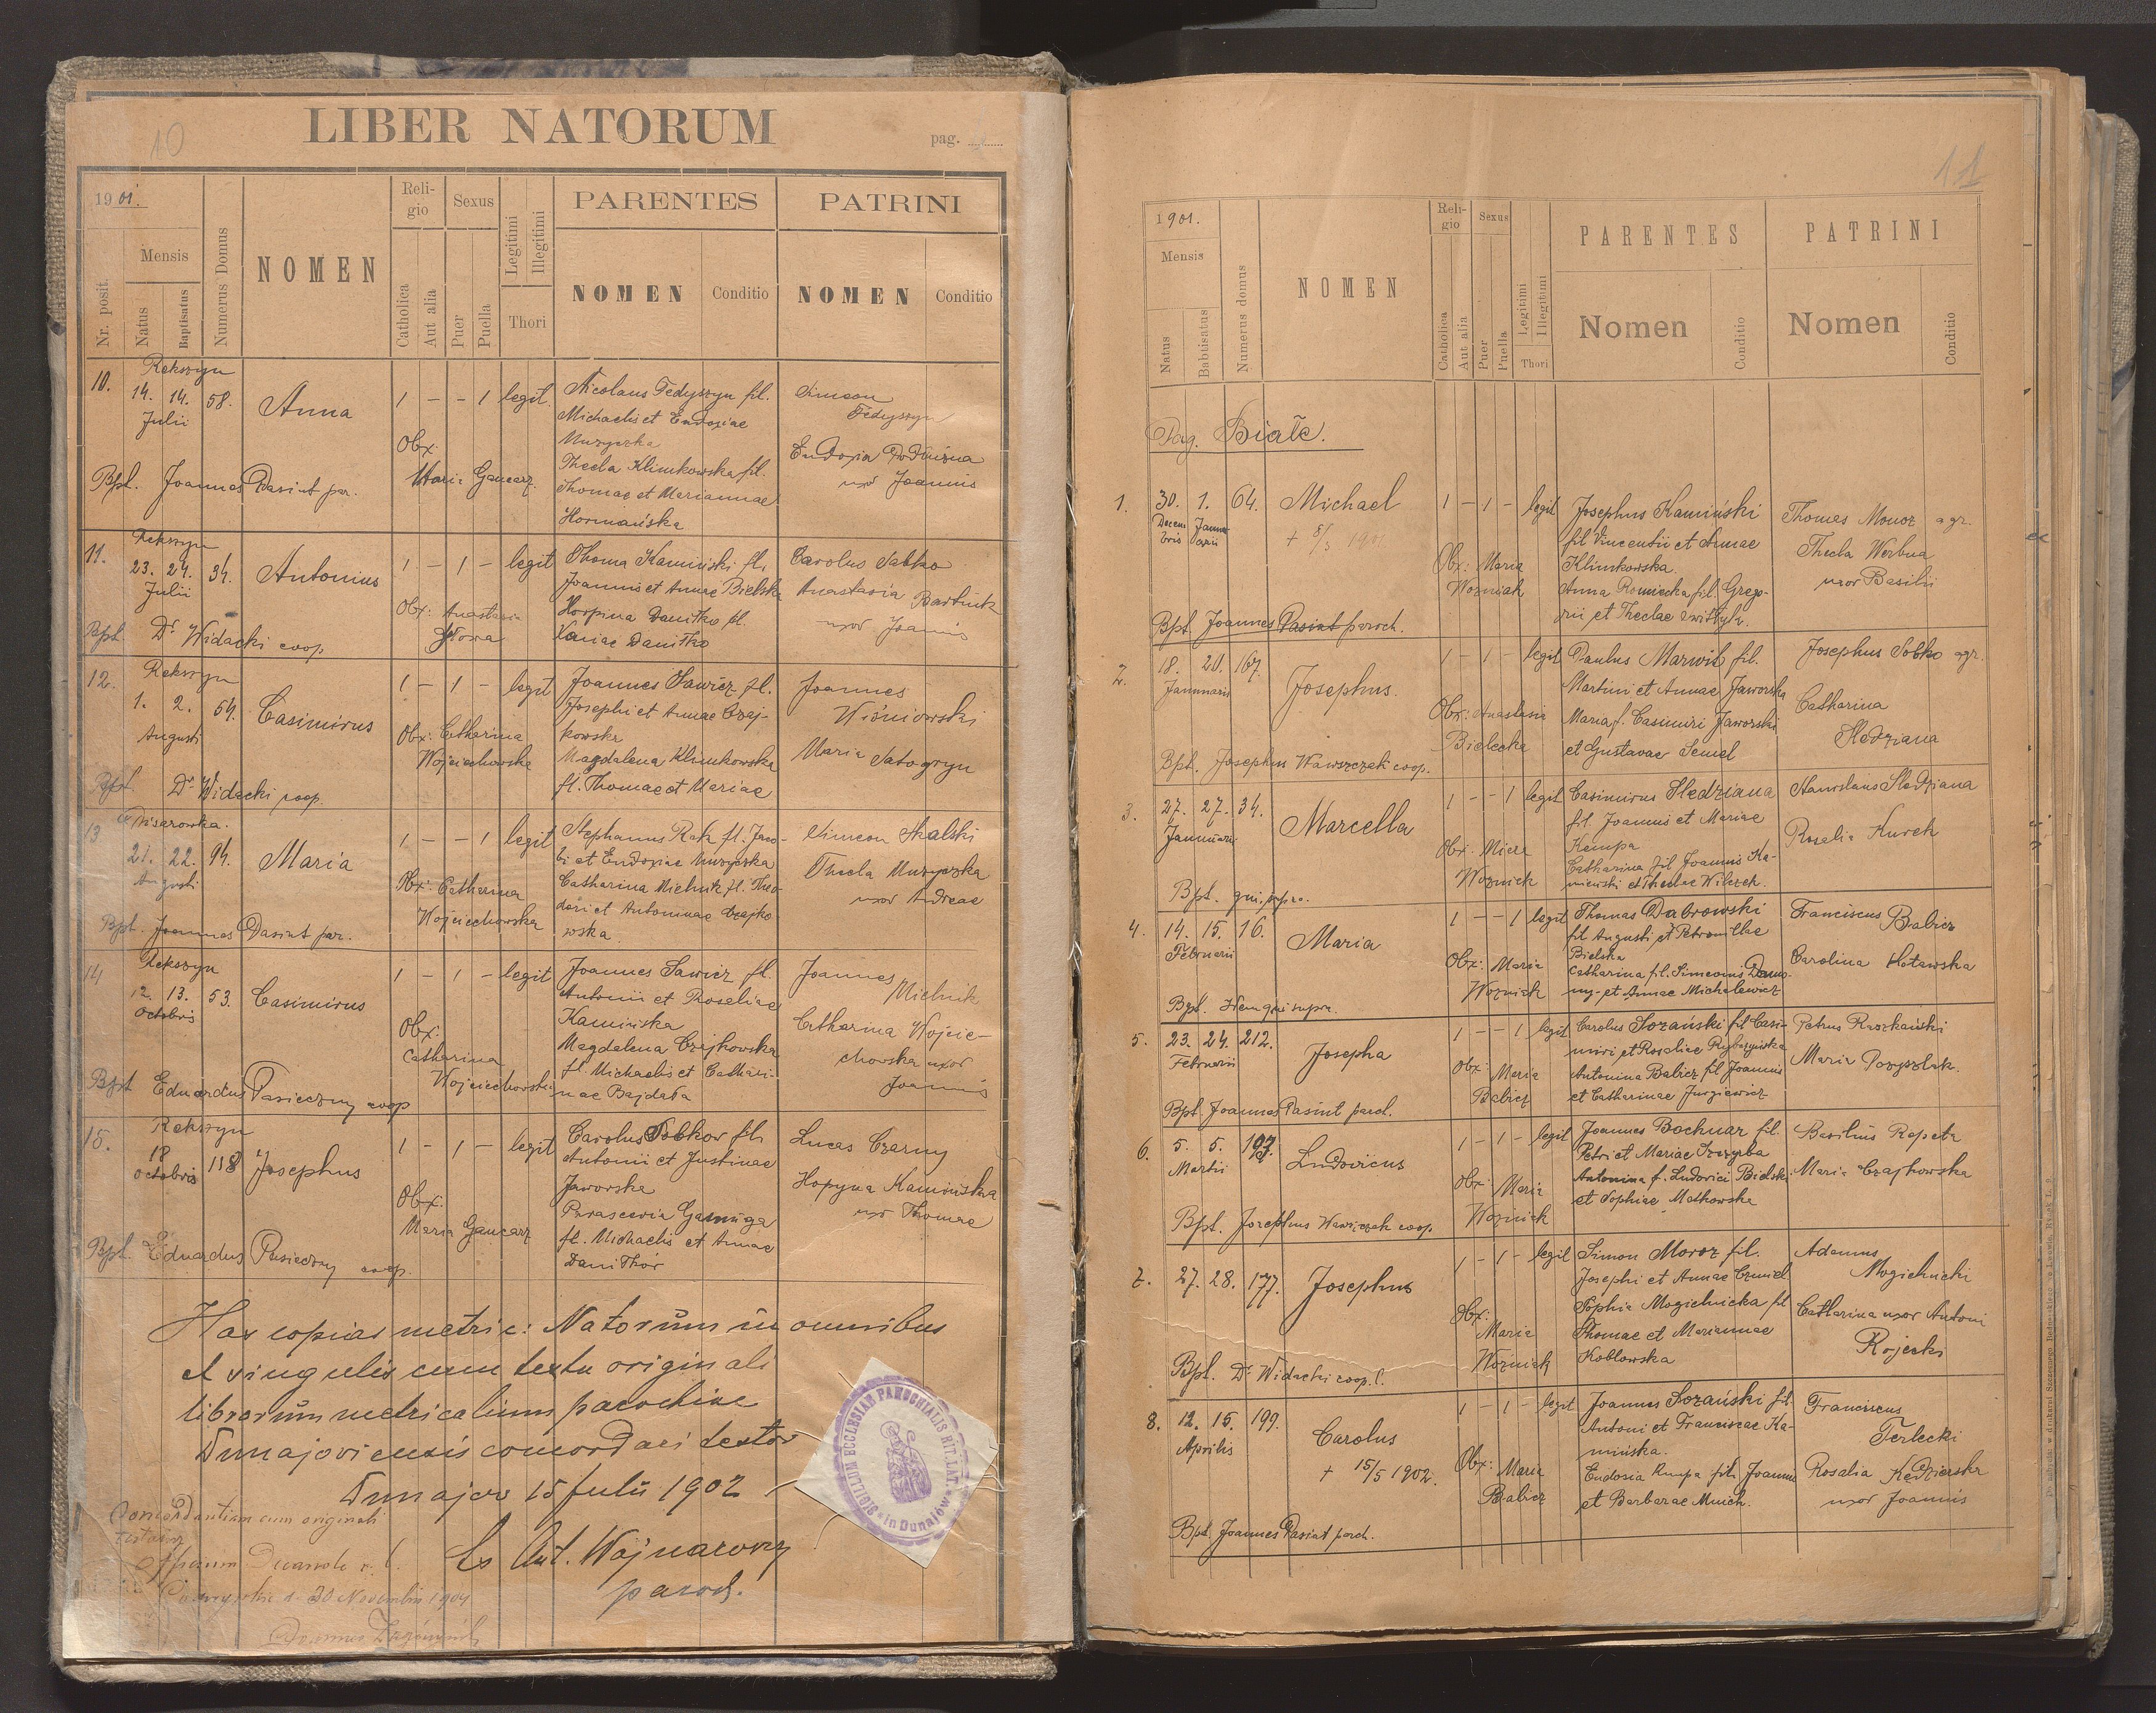 10
LIBER NATORUM
pag.
1901.
Nr. posit.
Mensis
Natus
Baptisatus
Numerus Domus
NOMEN
Religio
Catholica
Aut alia
Sexus
Puer
Puella
Legitimi
Illegitimi
Thori
PARENTES
NOMEN
Conditio
PATRINI
NOMEN
Conditio
Rekszyn
10. 14. 14. 58. Anna 1 - - 1 legit.
Julii
Nicolaus Fedyszyn fil.
Michaelis et Eudoxiae
Muzyczka
Thecla Klimkowska fil.
Thomae et Mariannae
Hormańska
Simeon
Fedyszyn
Eudoxia
uxor Joannis
Obx:
Maria Gancarz.
Bpt. Joannes Dasint par.
Rekszyn
11. 23. 24. 34. Antonius 1 - 1 - legit
Julii
Thoma Kamiński fil.
Joannis et Annae Bielska
Horpina Daniłko fl.
Xeniae Daniłko
Carolus Sabko
Anastasia Bartnik
uxor Joannis
Obx: Anastasia
Bpt. Dr Widacki coop
Rekszyn
12. 1. 2. 54. Casimirus 1 - 1 - legit
Augusti
Joannes Sawicz fl.
Josephi et Annae Czaj-
kowska
Magdalena Klimkowska
fl. Thomae et Mariae
Joannes
Wiśniowski
Maria
Obx: Catharina
Wojciechowska
Bpt. Dr Widacki coop.
Ciemisarowska.
13 21. 22. 94. Maria 1 - - 1 legit
Augusti
Stephanus Rak fl. Jaco-
bi et Eudoxiae Muzyczka
Catharina Mielnik fl. Theo
dori et Antoninae Czajko
wska
Simeon Skalski
Thecla Muzyczka
uxor Andreae
Obx: Catharina
Wojciechowska
Bpt. Joannes Dasint par.
Rekszyn
14 12. 13. 53. Casimirus 1 - 1 - legit
Octobris
Joannes Sawicz fl.
Antonii et Rosaliae
Kamińska
Magdalena Czajkowska
fl. Michaelis et Cathari-
nae Bajdała
Joannes
Mielnik
Catharina Wojcie-
chowska uxor
Joannis
Obx:
Catharina
Wojciechowska
Bpt Eduardus Pasieczny coop
Rekszyn
15. 18 118 Josephus 1 - 1 - legit
Octobris
Carolus Sobkow fil.
Antonii et Justinae
Jaworska
Parascevia
fl. Michaelis et Annae
Lucas Czarny
Hopyna Kamińska
uxor Thomae
Obx:
Maria Gancarz
Bpt. Eduardus Pasieczny coop.
Has copias metric: Natorum in omnibus
et singulis cum textu originali
librorum metricalium parochiae
Dunajoviensis concordari testor
Dunajow 15 Julii 1902
Ls Ant. Wojnarowcz
paroch.
SIGILLUM ECCLESIAE PAROCHIALIS RIT. LAT. in Dunajów
Concordantiam cum originali
testatur
d. 30 Novembris 1904
11
1901.
Mensis
Natus
Babtisatus
Numerus domus
NOMEN
Religio
Catholica
Aut alia
Sexus
Puer
Puella
Legitimi
Illegitimi
Thori
PARENTES
Nomen
Conditio
PATRINI
Nomen
Conditio
Pag. Białe.
1. 30. 1. 64. Michael 1 - 1 - legit
Decem
bris
Janu
arii
+ 8/3 1901
Josephus Kamiński
fil Vincentii et Annae
Klimkowska.
Anna Romiecka fil. Grego-
rii et Theclae
Thomas Moroz agr.
Thecla Werbna
uxor Basilii
Obx: Maria
Wozniak
Bpt. Joannes Dasint paroch.
2. 18. 20. 167. Josephus. 1 - 1 - legit
Januaris
Paulus Marwit fil.
Martini et Annae Jaworska
Maria f. Casimiri Jaworski
et Gustavae Semel
Josephus Sobko agr.
Catharina
Sledziana
Obx: Anastasia
Bielecka
Bpt. Josephus Wawszczak coop.
3. 27. 27. 34. Marcella 1 - - 1 legit
Januarii
Casimirus Sledziana
fil. Joannis et Mariae
Kempa
Catharina fil Joannis Ka-
mienski et Theclae Wilczek.
Stanislaus Sledziana
Rosalia Kurek
Obx: Maria
Wozniak
Bpt. qui supra.
4. 14. 15. 16. Maria 1 - - 1 legit
Februarii
Thomas Dabrowski
fil Augusti et Petronillae
Bielska
Catharina fil. Simeonis
et Annae Michalewicz
Franciscus Babicz
Carolina
Obx: Maria
Wozniak
Bpt. Idem qui supra.
5. 23. 24. 212. Josepha 1 - - 1 legit
Februarii
Carolus Sozański fil Casi-
miri et Rosaliae
Antonina Babicz fil Joannis
et Catharinae Jurgiewicz
Petrus
Maria
Obx: Maria
Babicz
Bpt. Joannes Dasint paroch.
6. 5. 5. 193. Ludovicus 1 - 1 - legit
Martii
Joannes Bochnar fil.
Petri et Mariae
Antonina f. Ludovici Bielski
et Sophiae Malkowska
Basilius Repeta
Maria Czajkowska
Obx: Maria
Wozniak
Bpt. Josephus Wawszczak coop.
7. 27. 28. 177. Josephus 1 - 1 - legit
Simon Moroz fil.
Josephi et Annae
Sophia Mogielnicka fil
Thomae et Mariannae
Koblowska
Adamus
Mogielnicki
Catharina uxor Antoni
Rojecki
Obx:
Maria
Wozniak
Bpt. Dr Widacki coop. l.
8. 12. 15. 199. Carolus 1 - 1 - legit
Aprilis
+ 15/5 1902.
Joannes Sozański fil
Antoni et Franciscae Ka-
minska.
Eudosia Kempa fil. Joannis
et Barbarae Much.
Franciscus
Terlecki
Rosalia Kędzierska
uxor Joannis
Obx: Maria
Babicz
Bpt. Joannes Dasint paroch.